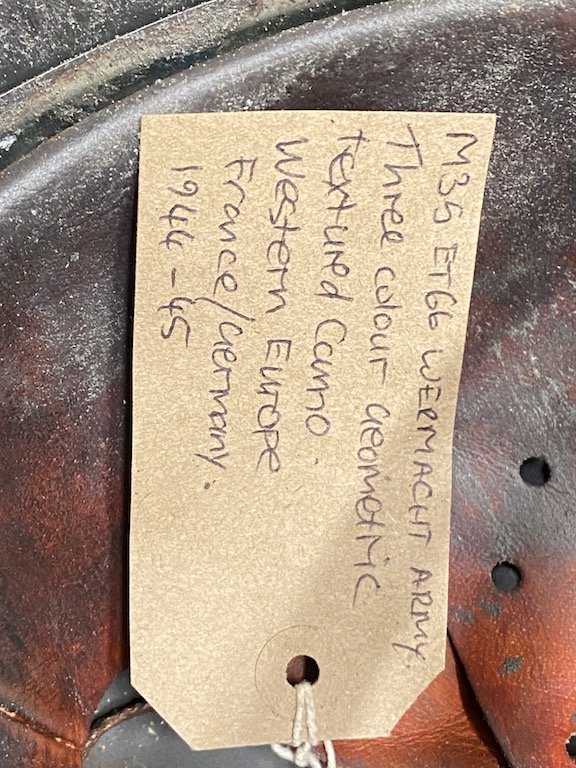 M35 ET66 WERMACHT ARMY.
Three colour Geometric
textured Camo.
Western Europe
France/Germany.
1944-45